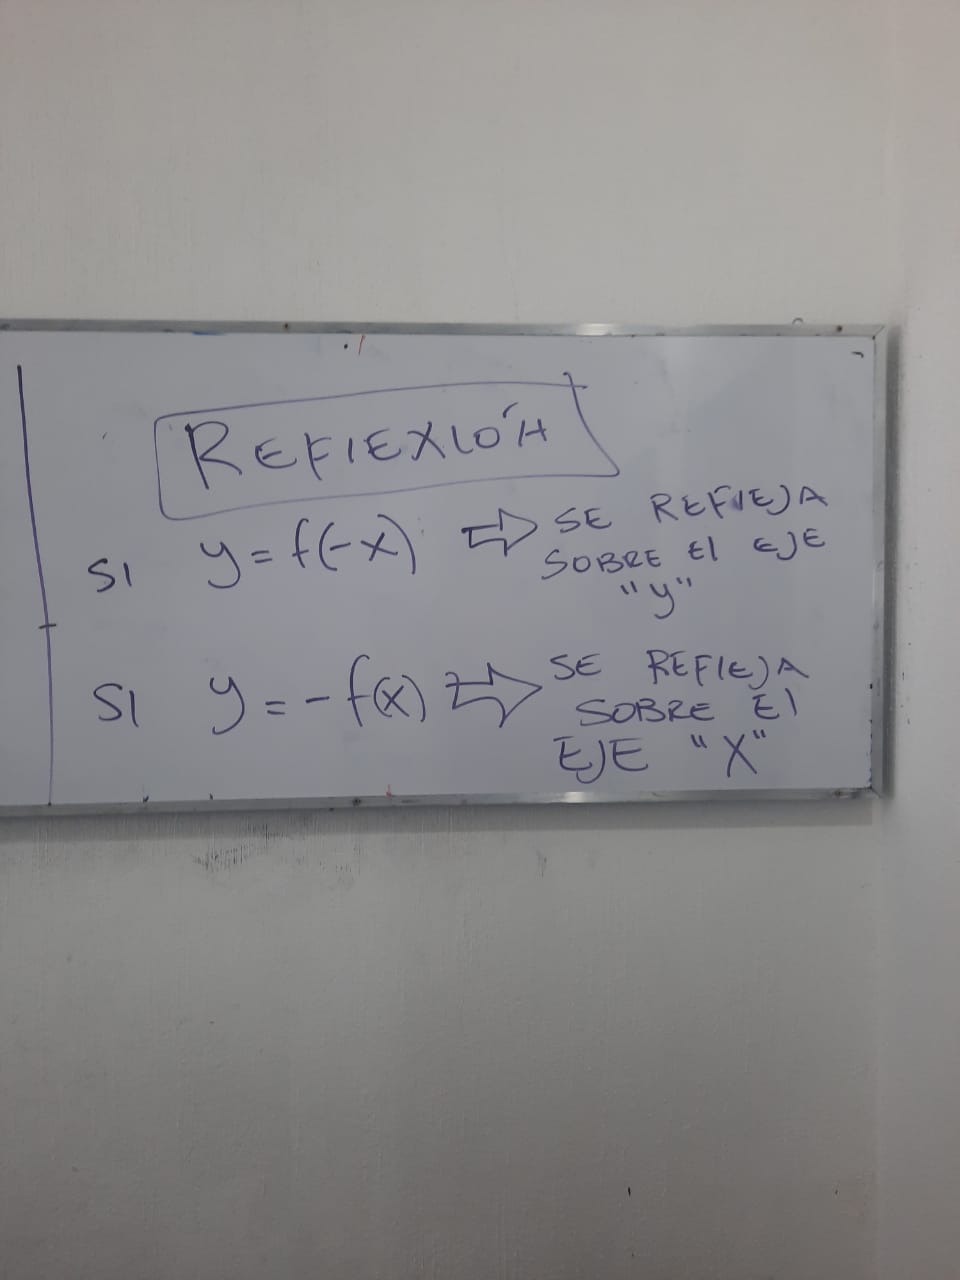 REFLEXIÓN
SI y = f(-x) ⇨ SE REFLEJA
SOBRE El EJE
"y"
SI y = -f(x) ⇨ SE REFLEJA
SOBRE El
EJE "X"